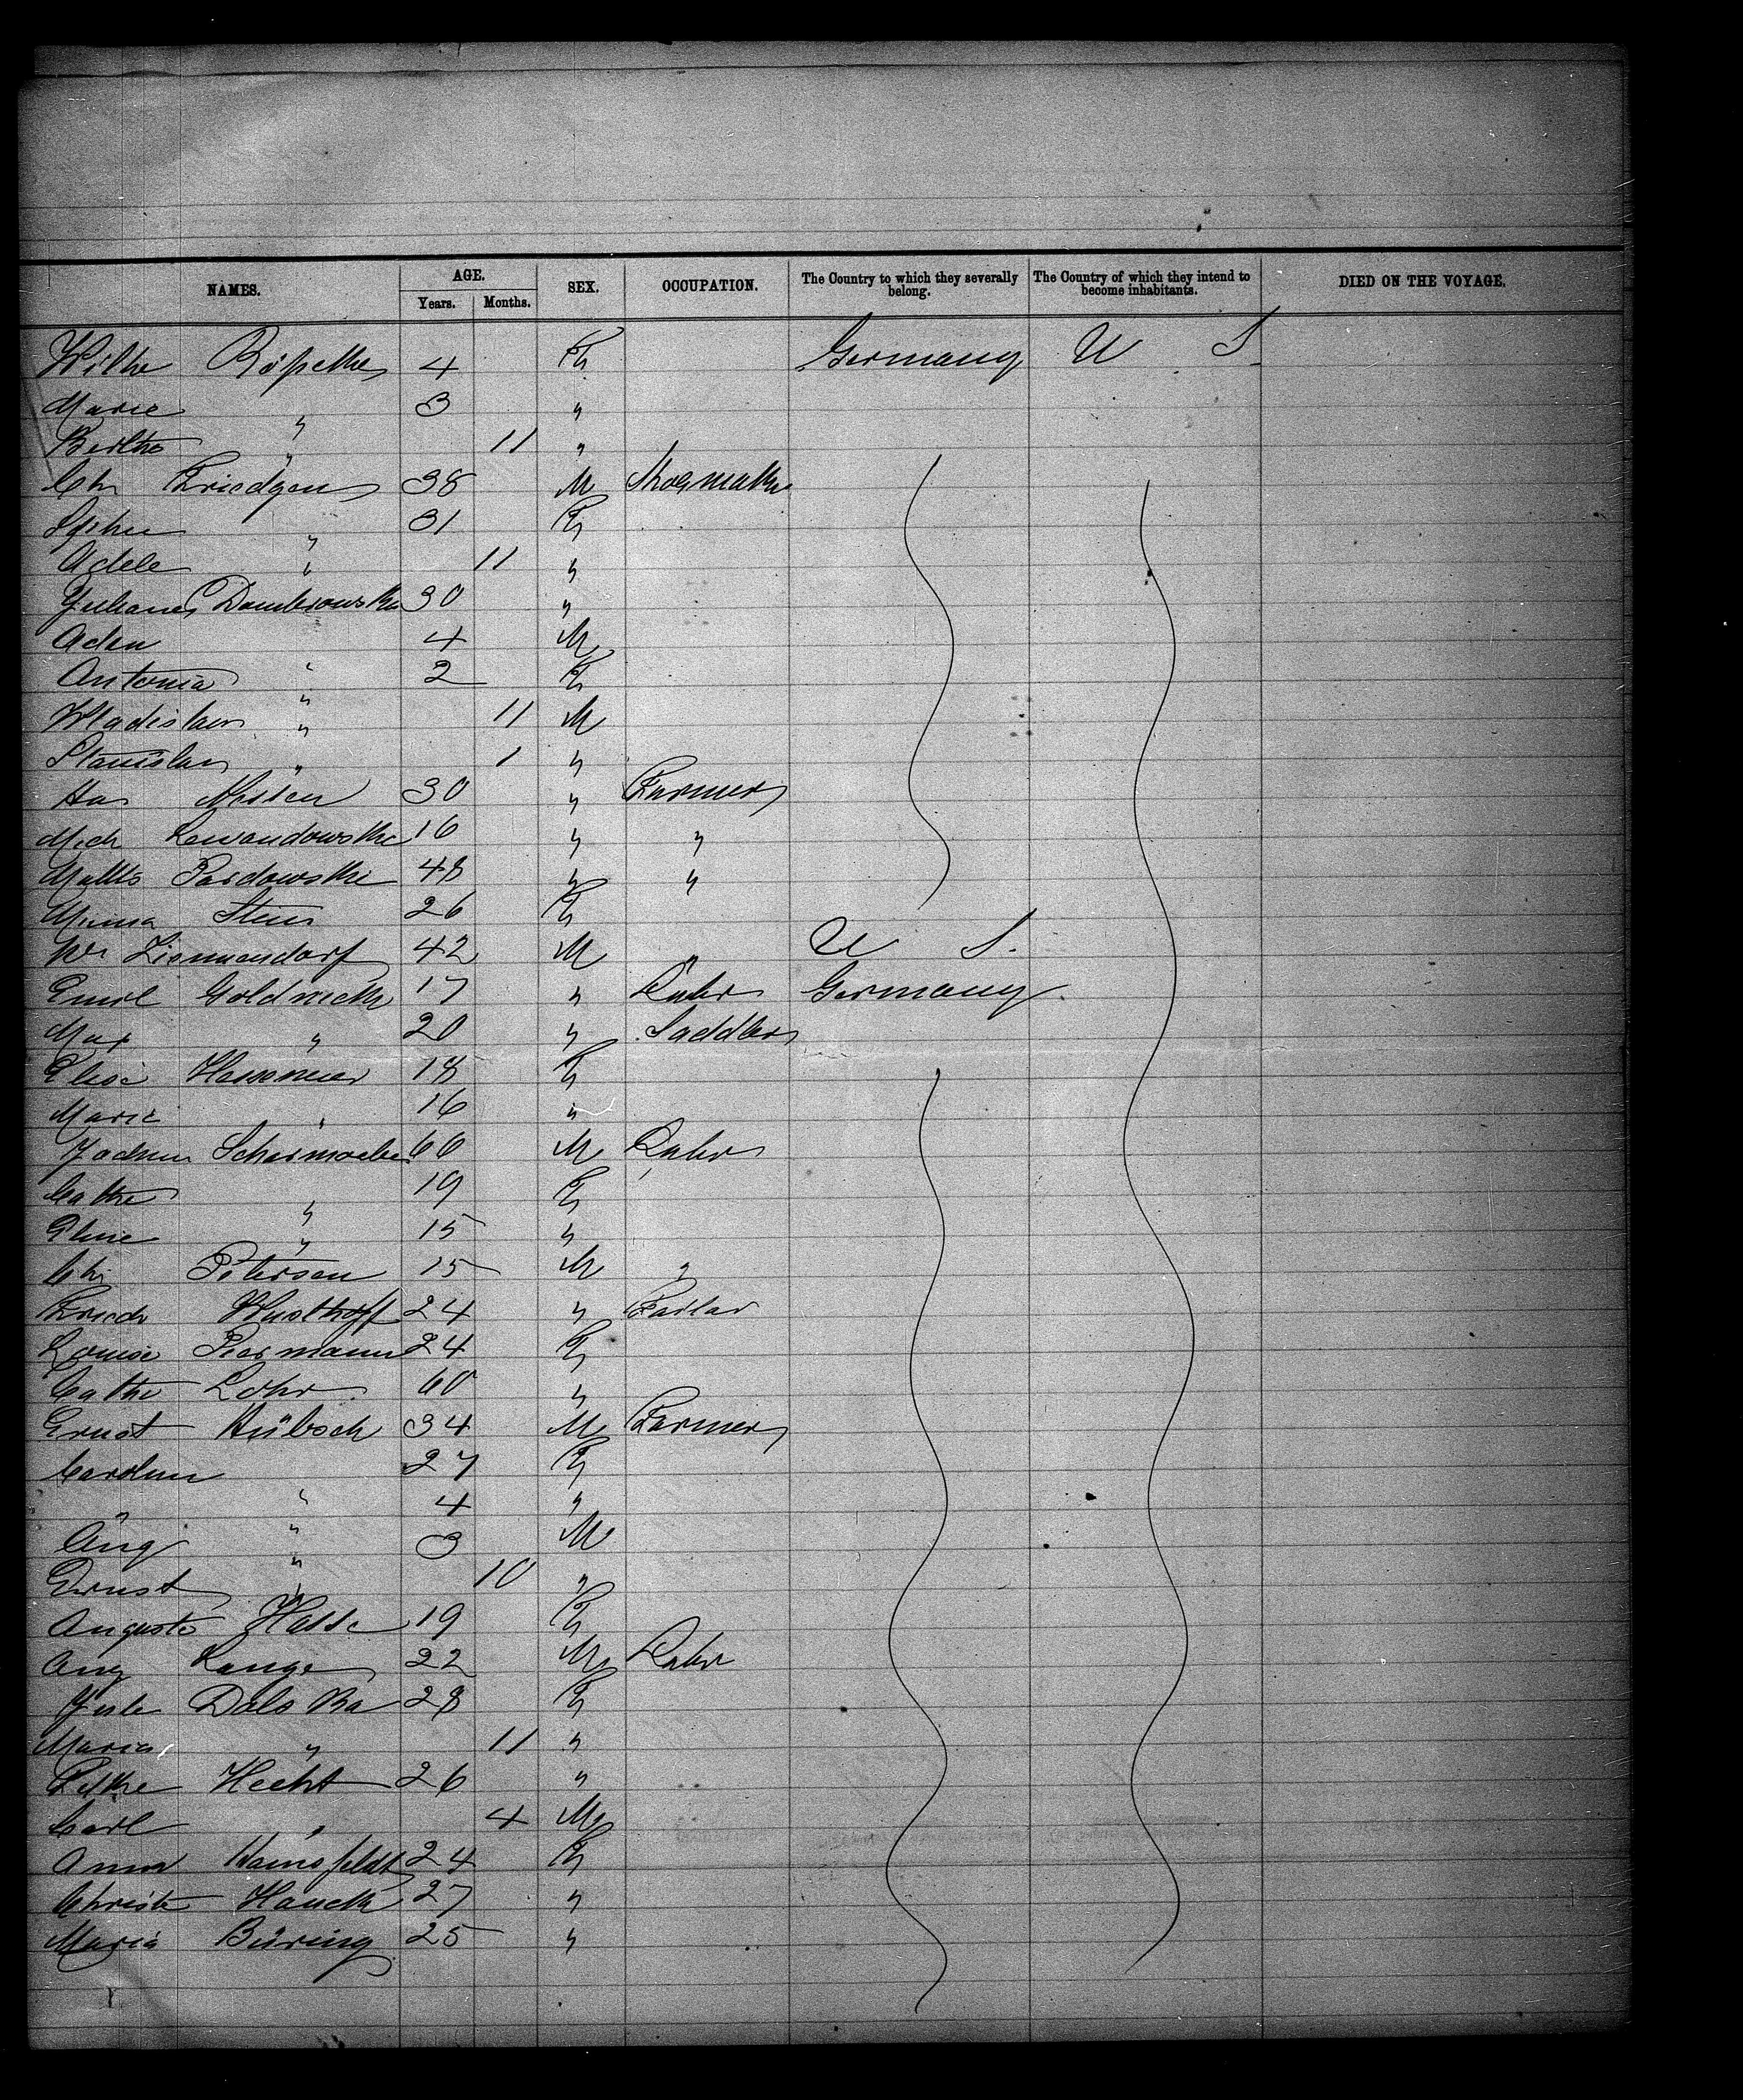 NAMES. AGE. Years. Months. SEX. OCCUPATION. The Country to which they severally belong. The Country of which they intend to become inhabitants. DIED ON THE VOYAGE.
Wilhe Röpelke 4 F Germany U S
Marie " 3 "
Berthe " 11 "
Chr Friedgen 38 M
" 31 F
Adele " 11 "
Juliane Dombrowska 30 "
Adam " 4 M
Antonia " 2 F
Wladislaw " 11 M
Stanislaw " 1 "
30 " Farmer
Mich Lewandowske 16 " "
48 " "
Minna Stein 26 F
Wm Zimmendorf 42 M " U S.
Emil Goldnick 17 " Labr Germany
Max " 20 " Saddler
Elise 18 F
Marie " 16 "
Jochum 60 M Labr
Cathe " 19 F
Eline " 15 "
Chr Petersen 15 M "
Friedr Wusthoff 24 "
Louise Piermann 24 F
Cathe Lohr 60 "
Ernst Hübsch 34 M Farmer
Carolina " 27 F
" " 4 "
Aug " 3 M
Ernst " 10 "
Auguste Hasse 19 F
Aug Lange 22 M Labr
Jule Dalska 28 F
Maria " 11 "
Hecht 26 "
Carl " 4 M
Anna Hainsfeldt 24 F
Christe Hauck 27 "
Maria Büring 25 "